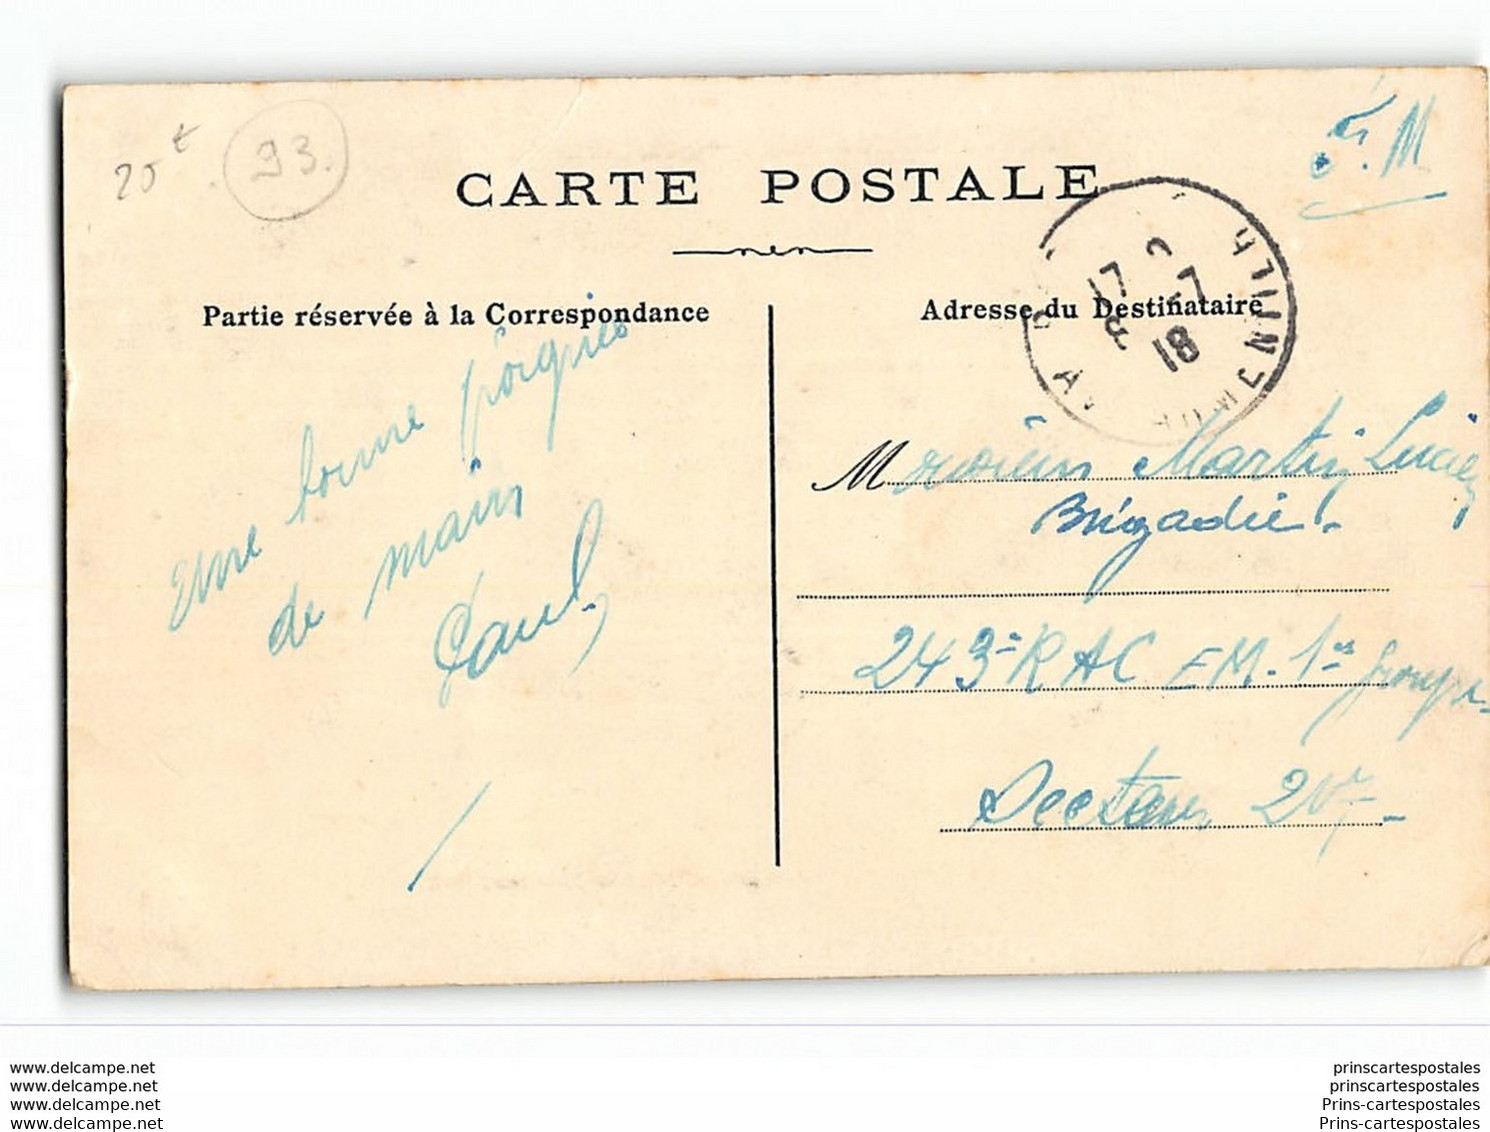 20 t
93.
F.M
CARTE POSTALE
17
2-7
18
Partie réservée à la Correspondance
Adresse du Destinataire
Une bonne poignée
de main
Paul
M Martin Lucien
Brigadier
243e RAC EM. 1er groupe
Secteur
www.delcampe.net
www.delcampe.net
www.delcampe.net
www.delcampe.net
prinscartespostales
prinscartespostales
Prins-cartespostales
Prins-cartespostales